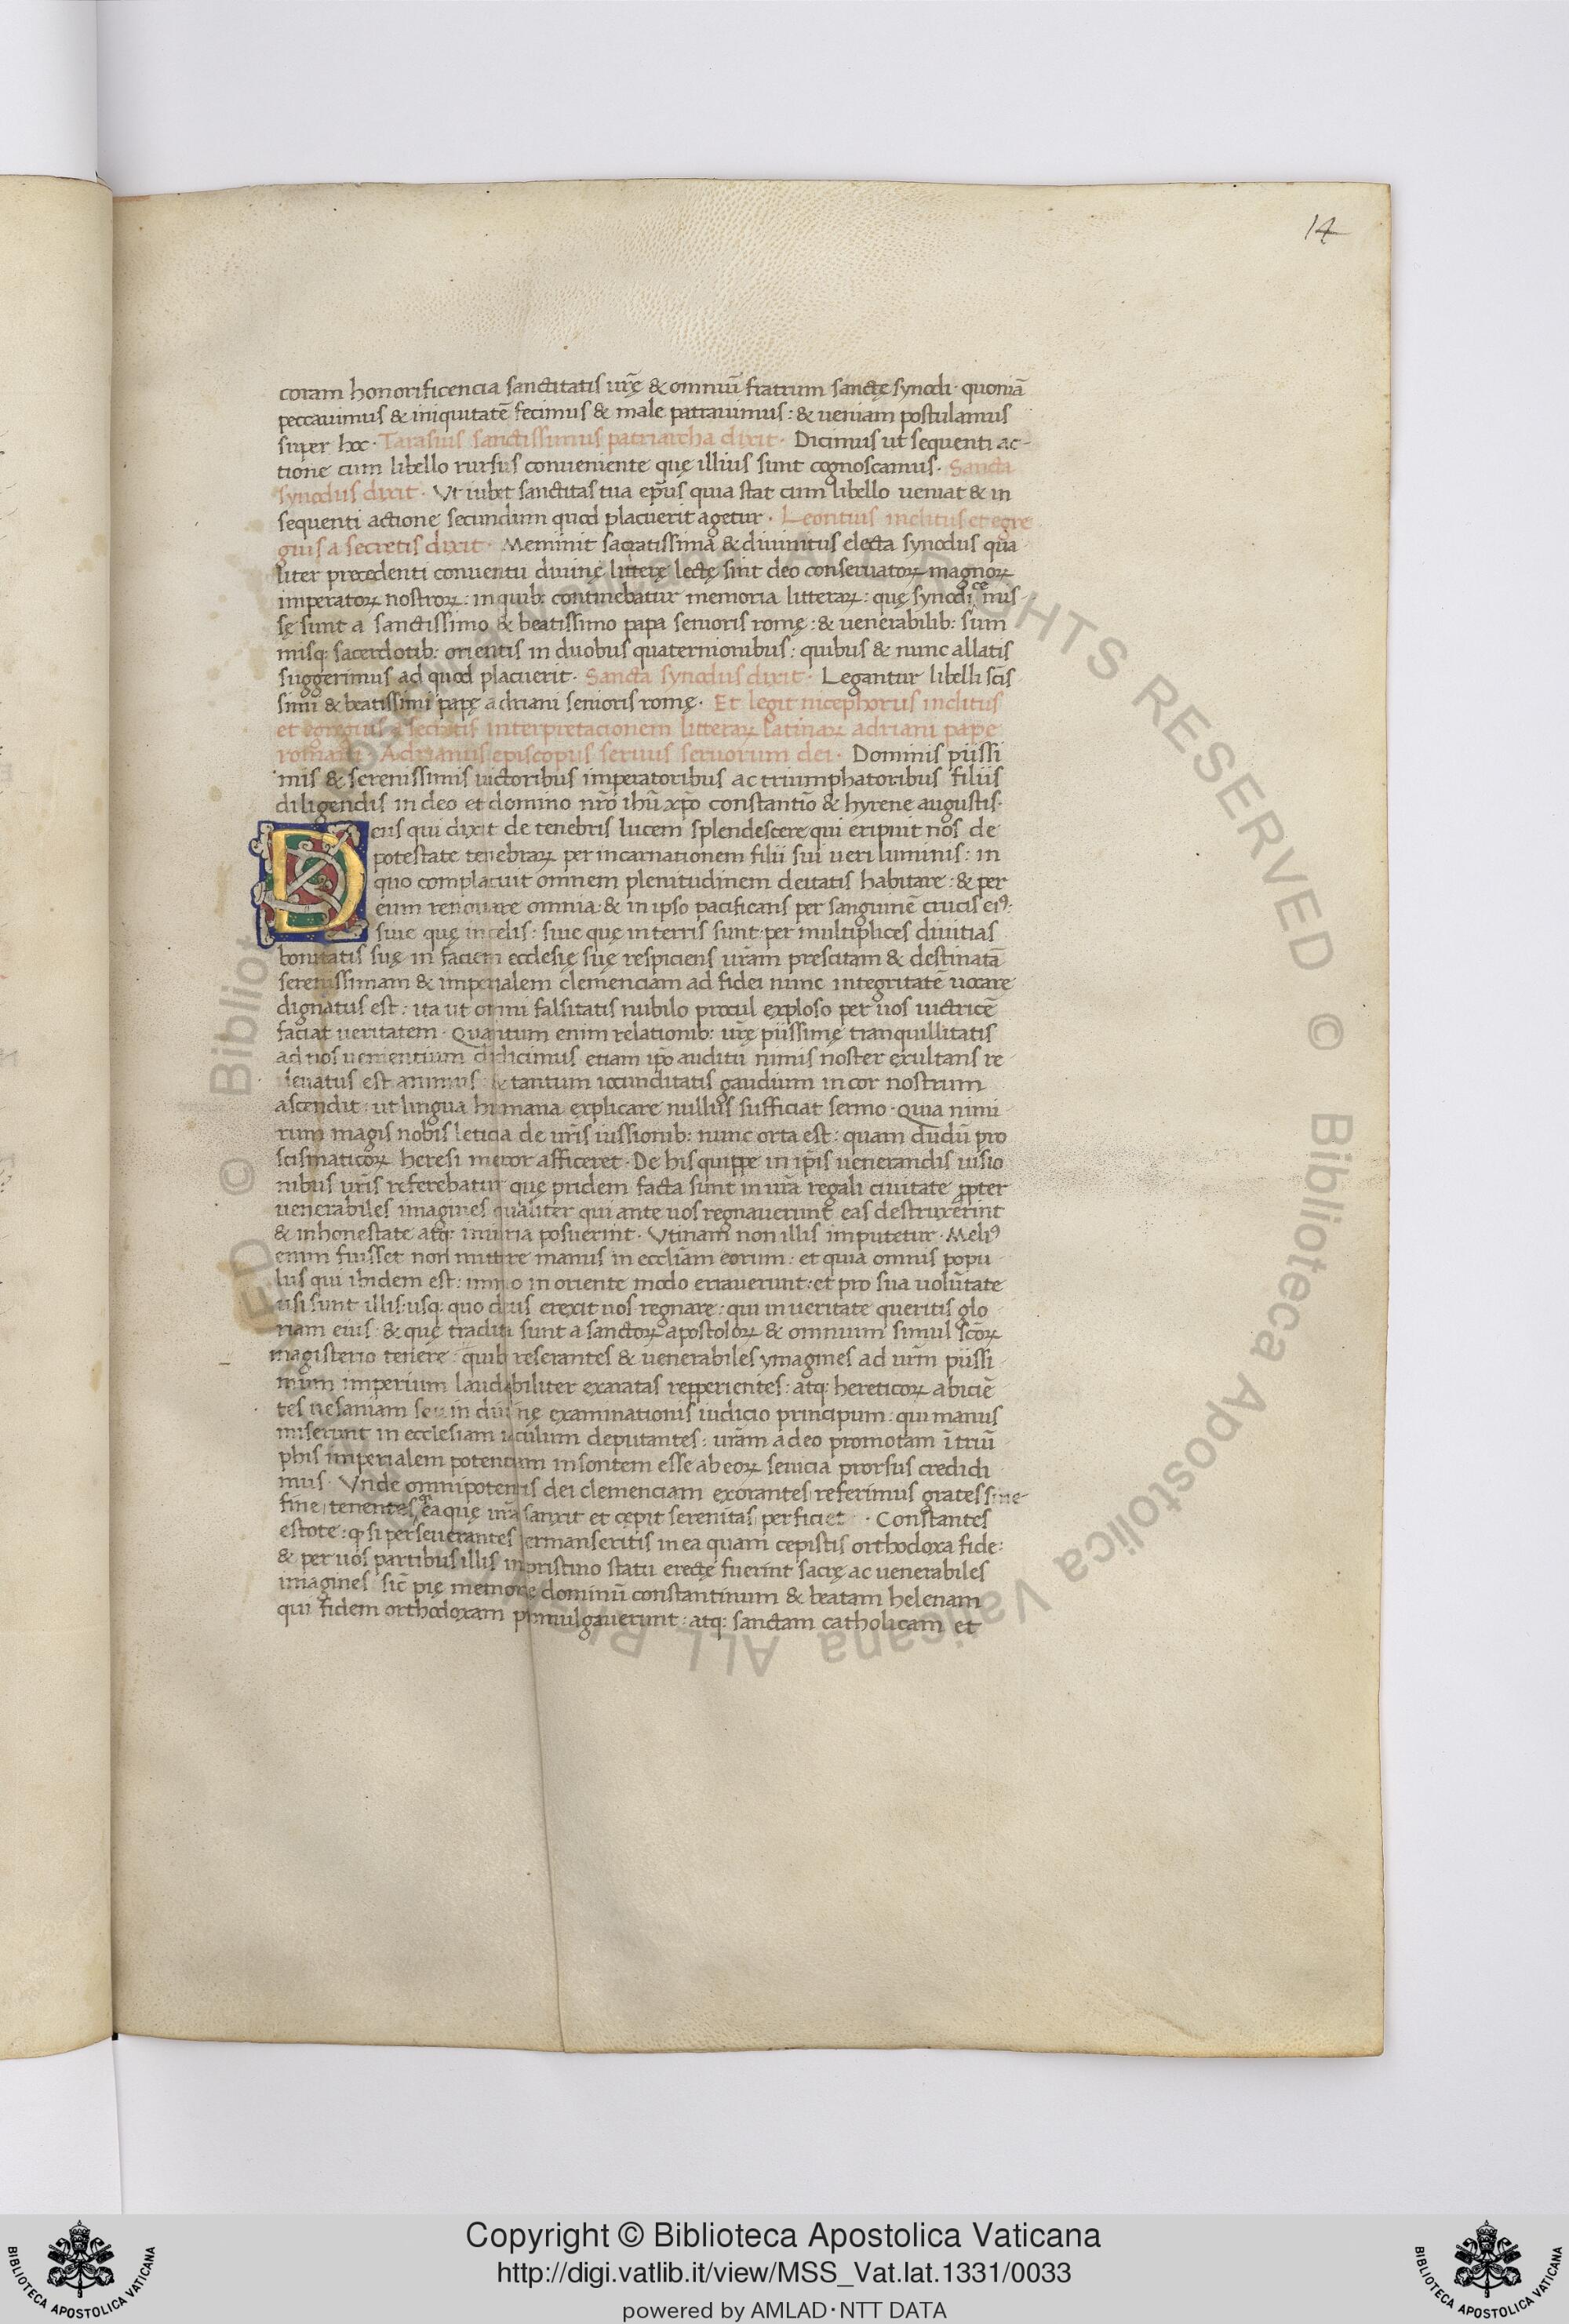 14
coram honorificencia sanctitatis ur̄ę & omniū fratrum sanctę synodi · quoniā
peccauimus & iniquitatē fecimus & male patrauimus : & ueniam postulamus
super hoc · Tarasius sanctissimus patriarcha dixit · Dicimus ut sequenti ac-
tione cum libello rursus conueniente quę illius sunt cognoscamus · Sancta
synodus dixit · Vt iubet sanctitas tua ep̄us quia stat cum libello ueniat & in
sequenti actione secundum quod placuerit agetur · Leontius inclitus et egre
gius a secretis dixit · Meminit sacratissima & diuinitus electa synodus qua
liter precedenti conuentu diuinę litterę lectę sint deo conseruatoꝝ magnoꝝ
imperatoꝝ nostroꝝ : in quib: continebatur memoria litteraꝝ : quę synodicę mis-
sę sunt a sanctissimo & beatissimo papa senioris romę : & uenerabilib: sum
misq: sacerdotib: orientis in duobus quaternionibus : quibus & nunc allatis
suggerimus ad quod placuerit · Sancta synodus dixit · Legantur libelli sc̄is
simi & beatissimi papę adriani senioris romę · Et legit nicephorus inclitus
et egregius a secretis interpretacionem litteraꝝ latinaꝝ adriani pape
romani · Adrianus episcopus seruus seruorum dei · Dominis piissi
mis & serenissimis uictoribus imperatoribus ac triumphatoribus filiis
diligendis in deo et domino nr̄o ihū xp̄o constantino & hyrene augustis·
Deus qui dixit de tenebris lucem splendescere qui eripuit nos de
potestate tenebraꝝ per incarnationem filii sui ueri luminis : in
quo complacuit omnem plenitudinem deitatis habitare : & per
eum renouare omnia : & in ipso pacificans per sanguinē crucis eiꝰ:
siue quę in celis : siue quę in terris sunt : per multiplices diuitias
bonitatis suę in faciem ecclesię suę respiciens ur̄am prescitam & destinatā
serenissimam & imperialem clemenciam ad fidei nunc integritatē uocare
dignatus est : ita ut omni falsitatis nubilo procul exploso per uos uictricē
faciat ueritatem · Quantum enim relationib: ur̄ę piissimę tranquillitatis
ad nos uenientium didicimus etiam ip̄o auditu nimis noster exultans re
leuatus est animus : & tantum iocunditatis gaudium in cor nostrum
ascendit : ut lingua humana explicare nullius sufficiat sermo · Quia nimi
rum magis nobis leticia de ur̄is iussionib: nunc orta est : quam dudū pro
scismaticoꝝ heresi meror afficeret · De his quippe in ip̄is uenerandis iussio
nibus ur̄is referebatur quę pridem facta sunt in ur̄a regali ciuitate ꝓpter
uenerabiles imagines qualiter qui ante uos regnauerunt eas destruxerint
& inhonestate atq: iniuria posuerint · Vtinam non illis imputetur · Meliꝰ
enim fuisset non mittere manus in eccliam̄ eorum · et quia omnis popu
lus qui ibidem est : immo in oriente modo errauerunt : et pro sua uolūtate
usi sunt illis : usq: quo deus erexit uos regnare : qui in ueritate queritis glo
riam eius : & quę tradita sunt a sanctoꝝ apostoloꝝ & omnium simul sc̄oꝝ
magisterio tenere : quib reserantes & uenerabiles ymagines ad ur̄m piissi
mum imperium laudabiliter exaratas repperientes : atq: hereticoꝝ abiciē
tes uesaniam seu in diuinę examinationis iudicio principum : qui manus
miserunt in ecclesiam iaculum deputantes : ur̄am a deo promotam ī triū
phis imperialem potentiam insontem esse ab eoꝝ seuicia prorsus credidi
mus · Vnde omnipotentis dei clemenciam exorantes referimus grates sine
fine tenentes q̄a ea que ur̄a sanxit et cepit serenitas perficiet · Constantes
estote : ꝙ si perseuerantes permanseritis in ea quam cepistis orthodoxa fide :
& per uos partibus illis in pristino statu erectę fuerint sacrę ac uenerabiles
imagines : sic̄ pię memorię dominū constantinum & beatam helenam
qui fidem orthodoxam promulgauerunt : atq: sanctam catholicam et
© Biblioteca Apostolica Vaticana ALL RIGHTS RESERVED
Copyright © Biblioteca Apostolica Vaticana
http://digi.vatlib.it/view/MSS_Vat.lat.1331/0033
powered by AMLAD·NTT DATA
BIBLIOTECA APOSTOLICA VATICANA
BIBLIOTECA APOSTOLICA VATICANA